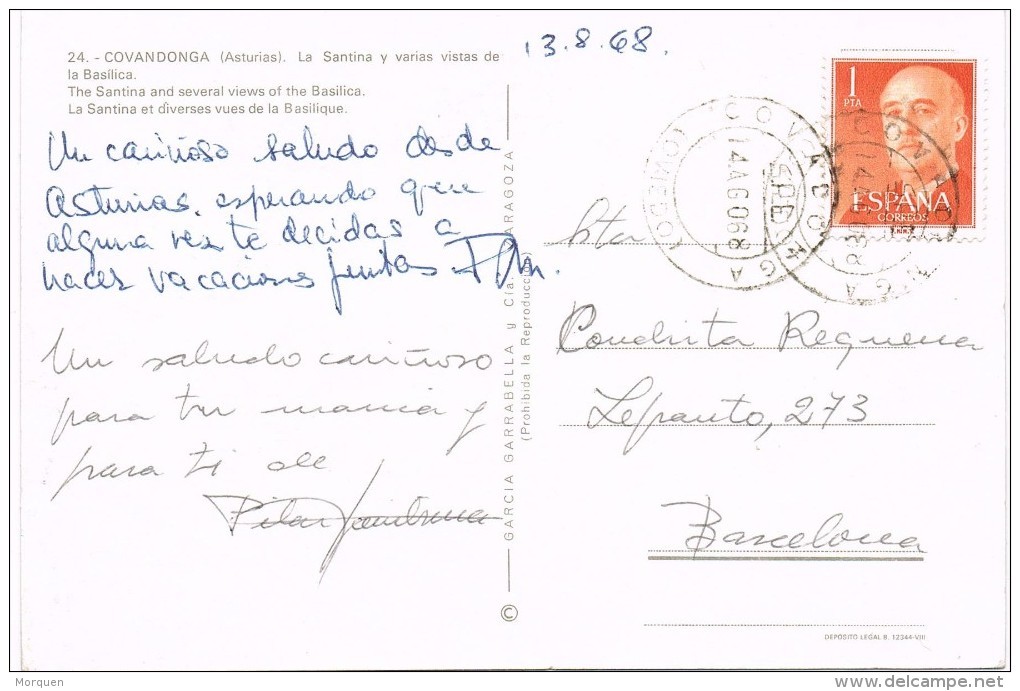 13.8.68.
24. - COVANDONGA (Asturias). La Santina y varias vistas de
la Basílica.
The Santina and several views of the Basilica.
La Santina et diverses vues de la Basilique.
Un cariñoso saludo desde
Asturias, esperando que
alguna vez te decidas a
hacer vacaciones juntas
Un saludo cariñoso
para tu mamá y
para ti de
Pilar
GARCIA GARRABELLA y Cía. ZARAGOZA
(Prohibida la Reproducción)
©
1
PTA
ESPAÑA
CORREOS
COVADONGA
14AGO68
(OVIEDO)
Srta
Conchita Requena
Lepanto, 273
Barcelona
DEPOSITO LEGAL B. 12344-VIII
Morquen
delcampe.net